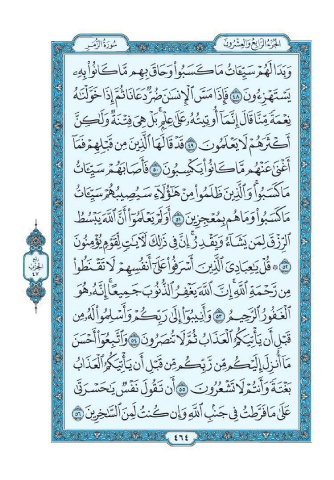 الجزء الرابع والعشرون
سورة الزمر
وَبَدَا لَهُمْ سَيِّـَٔاتُ مَا كَسَبُوا۟ وَحَاقَ بِهِم مَّا كَانُوا۟ بِهِۦ
يَسْتَهْزِءُونَ ٤٨ فَإِذَا مَسَّ ٱلْإِنسَـٰنَ ضُرٌّ دَعَانَا ثُمَّ إِذَا خَوَّلْنَـٰهُ
نِعْمَةً مِّنَّا قَالَ إِنَّمَآ أُوتِيتُهُۥ عَلَىٰ عِلْمٍۭ ۚ بَلْ هِىَ فِتْنَةٌ وَلَـٰكِنَّ
أَكْثَرَهُمْ لَا يَعْلَمُونَ ٤٩ قَدْ قَالَهَا ٱلَّذِينَ مِن قَبْلِهِمْ فَمَآ
أَغْنَىٰ عَنْهُم مَّا كَانُوا۟ يَكْسِبُونَ ٥٠ فَأَصَابَهُمْ سَيِّـَٔاتُ
مَا كَسَبُوا۟ ۚ وَٱلَّذِينَ ظَلَمُوا۟ مِنْ هَـٰٓؤُلَآءِ سَيُصِيبُهُمْ سَيِّـَٔاتُ
مَا كَسَبُوا۟ وَمَا هُم بِمُعْجِزِينَ ٥١ أَوَلَمْ يَعْلَمُوٓا۟ أَنَّ ٱللَّهَ يَبْسُطُ
ٱلرِّزْقَ لِمَن يَشَآءُ وَيَقْدِرُ ۚ إِنَّ فِى ذَٰلِكَ لَـَٔايَـٰتٍ لِّقَوْمٍ يُؤْمِنُونَ
٥٢ ۞ قُلْ يَـٰعِبَادِىَ ٱلَّذِينَ أَسْرَفُوا۟ عَلَىٰٓ أَنفُسِهِمْ لَا تَقْنَطُوا۟
مِن رَّحْمَةِ ٱللَّهِ ۚ إِنَّ ٱللَّهَ يَغْفِرُ ٱلذُّنُوبَ جَمِيعًا ۚ إِنَّهُۥ هُوَ
ٱلْغَفُورُ ٱلرَّحِيمُ ٥٣ وَأَنِيبُوٓا۟ إِلَىٰ رَبِّكُمْ وَأَسْلِمُوا۟ لَهُۥ مِن
قَبْلِ أَن يَأْتِيَكُمُ ٱلْعَذَابُ ثُمَّ لَا تُنصَرُونَ ٥٤ وَٱتَّبِعُوٓا۟ أَحْسَنَ
مَآ أُنزِلَ إِلَيْكُم مِّن رَّبِّكُم مِّن قَبْلِ أَن يَأْتِيَكُمُ ٱلْعَذَابُ
بَغْتَةً وَأَنتُمْ لَا تَشْعُرُونَ ٥٥ أَن تَقُولَ نَفْسٌ يَـٰحَسْرَتَىٰ
عَلَىٰ مَا فَرَّطتُ فِى جَنۢبِ ٱللَّهِ وَإِن كُنتُ لَمِنَ ٱلسَّـٰخِرِينَ ٥٦
ربع
الحزب
٤٧
٤٦٤